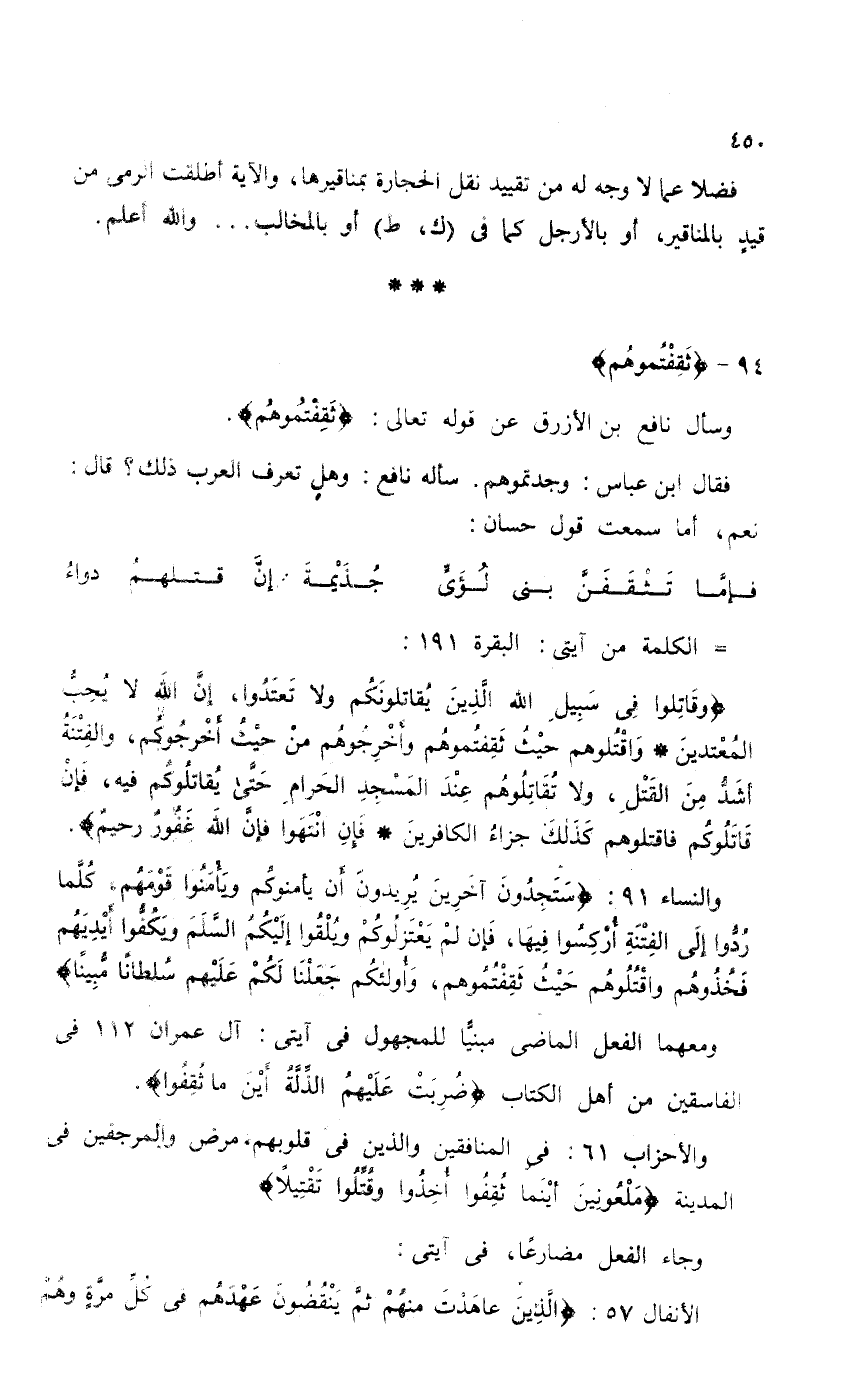 ٤٥٠
فضلا عما لا وجه له من تقييد نقل الحجارة بمناقيرها، والآية أطلقت الرمى من
قيدٍ بالمناقير، أو بالأرجل كما فى (ك، ط) أو بالمخالب... والله أعلم.
***
٩٤ - ﴿ثَقِفْتُموهُم﴾
وسأل نافع بن الأزرق عن قوله تعالى: ﴿ثَقِفْتُمُوهُم﴾.
فقال ابن عباس: وجدتموهم. سأله نافع: وهل تعرف العرب ذلك؟ قال:
نعم، أما سمعت قول حسان:
فـإمَّـا تَـثْـقَـفَـنَّ بـنى لُـؤَىٍّ جُـذَيْمـةَ إنَّ قـتـلهـمُ دواءُ
= الكلمة من آيتى: البقرة ١٩١:
﴿وقَاتِلوا فِى سَبِيلِ الله الَّذِينَ يُقاتلونَكُم ولا تَعتَدُوا، إنَّ اللهَ لا يُحِبُّ
المُعْتدينَ * وَاقْتُلوهم حيْثُ ثَقِفتُموهم وأَخْرِجُوهم منْ حيْثُ أَخْرجُوكُم، والفِتْنَةُ
أشَدُّ مِنَ القَتْلِ، ولا تُقَاتِلُوهُم عِنْدَ المَسْجِدِ الحَرامِ حَتَّىٰ يُقاتلُوكُم فيه، فَإنْ
قَاتَلُوكُم فاقتلوهم كَذَلكَ جزاءُ الكافرينَ * فَإِنِ انْتَهَوا فإنَّ الله غَفُورٌ رحيمٌ﴾.
والنساء ٩١: ﴿سَتَجِدُونَ آخَرِينَ يُريدونَ أَن يأمنوكُم ويَأْمَنُوا قَوْمَهُم، كُلَّما
رُدُّوا إلَى الفِتْنَةِ أُرْكِسُوا فِيهَا، فَإن لمْ يَعْتَزِلُوكُمْ ويُلْقُوا إلَيْكُمُ السَّلَمَ ويَكُفُّوا أَيْدِيَهُم
فَخُذُوهُم واقْتُلُوهُم حَيْثُ ثَقِفْتُمُوهم، وَأُولئكُم جَعَلْنَا لَكُمْ عَلَيْهم سُلطانًا مُّبِينًا﴾
ومعهما الفعل الماضى مبنيًّا للمجهول فى آيتى: آل عمران ١١٢ فى
الفاسقين من أهل الكتاب ﴿ضُرِبَتْ عَلَيْهمُ الذِّلَّةُ أَيْنَ ما ثُقِفُوا﴾.
والأحزاب ٦١: فى المنافقين والذين فى قلوبهم مرض والمرجفين فى
المدينة ﴿مَلْعُونِينَ أَيْنَما ثُقِفُوا أُخِذُوا وقُتِّلُوا تَقْتِيلاً﴾
وجاء الفعل مضارعًا، فى آيتى:
الأنفال ٥٧: ﴿الَّذِينَ عاهَدْتَ منهُمْ ثمَّ يَنْقُضُونَ عَهْدَهُم فى كُلِّ مرَّةٍ وهُمْ